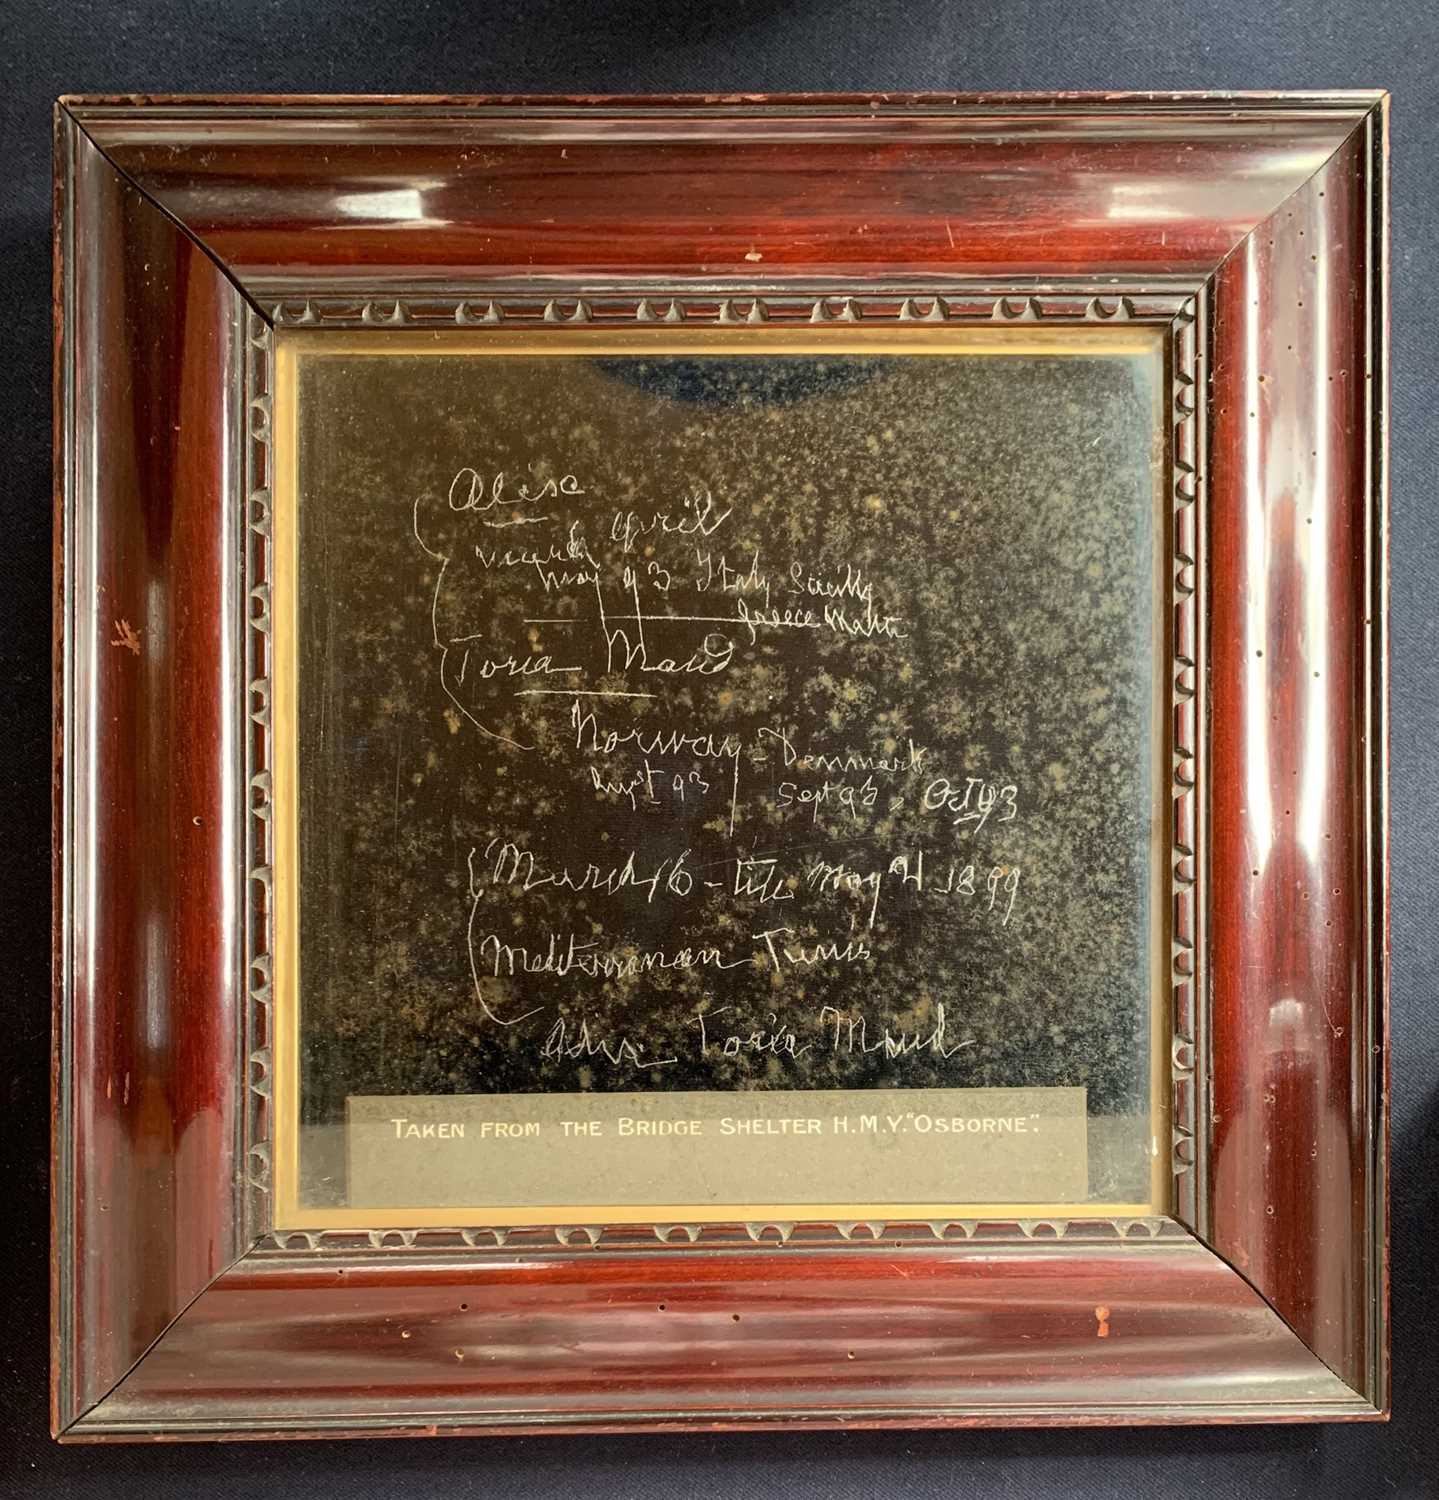 Alix
March April
May 93 Italy Sicilly
Greece Malta
Toria Maud
Norway - Denmark
Augst 93 Sept 93, Oct 93
March 16 - till May 4 1899
Mediterranean Tunis
Toria Maud
TAKEN FROM THE BRIDGE SHELTER H.M.Y. "OSBORNE".